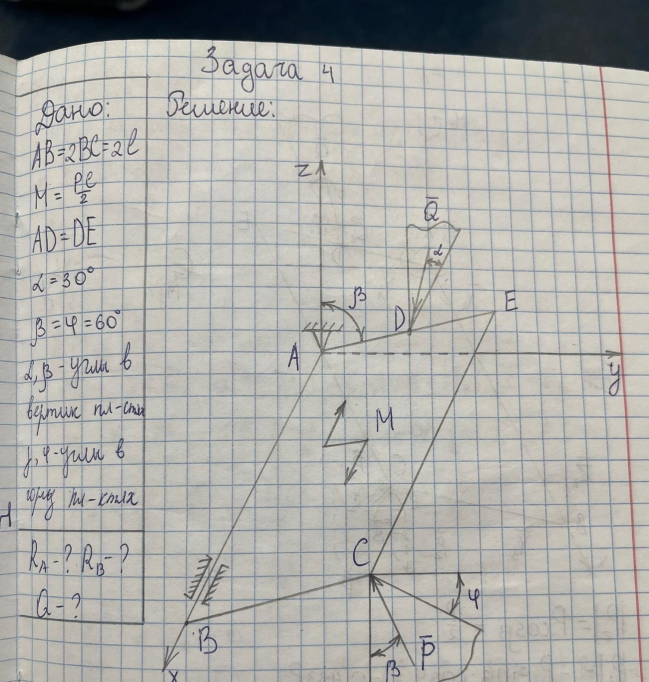 Задача 4
Дано:
Решение:
AB=2BC=2l
M = Pl/2
AD=DE
α=30°
β=φ=60°
α,β-углы в
вертик пл-сти
γ,φ-углы в
гориз пл-кстях
R_A-? R_B-?
Q-?
z
Q̄
α
β
D
E
A
y
M
C
φ
B
β
P̄
x